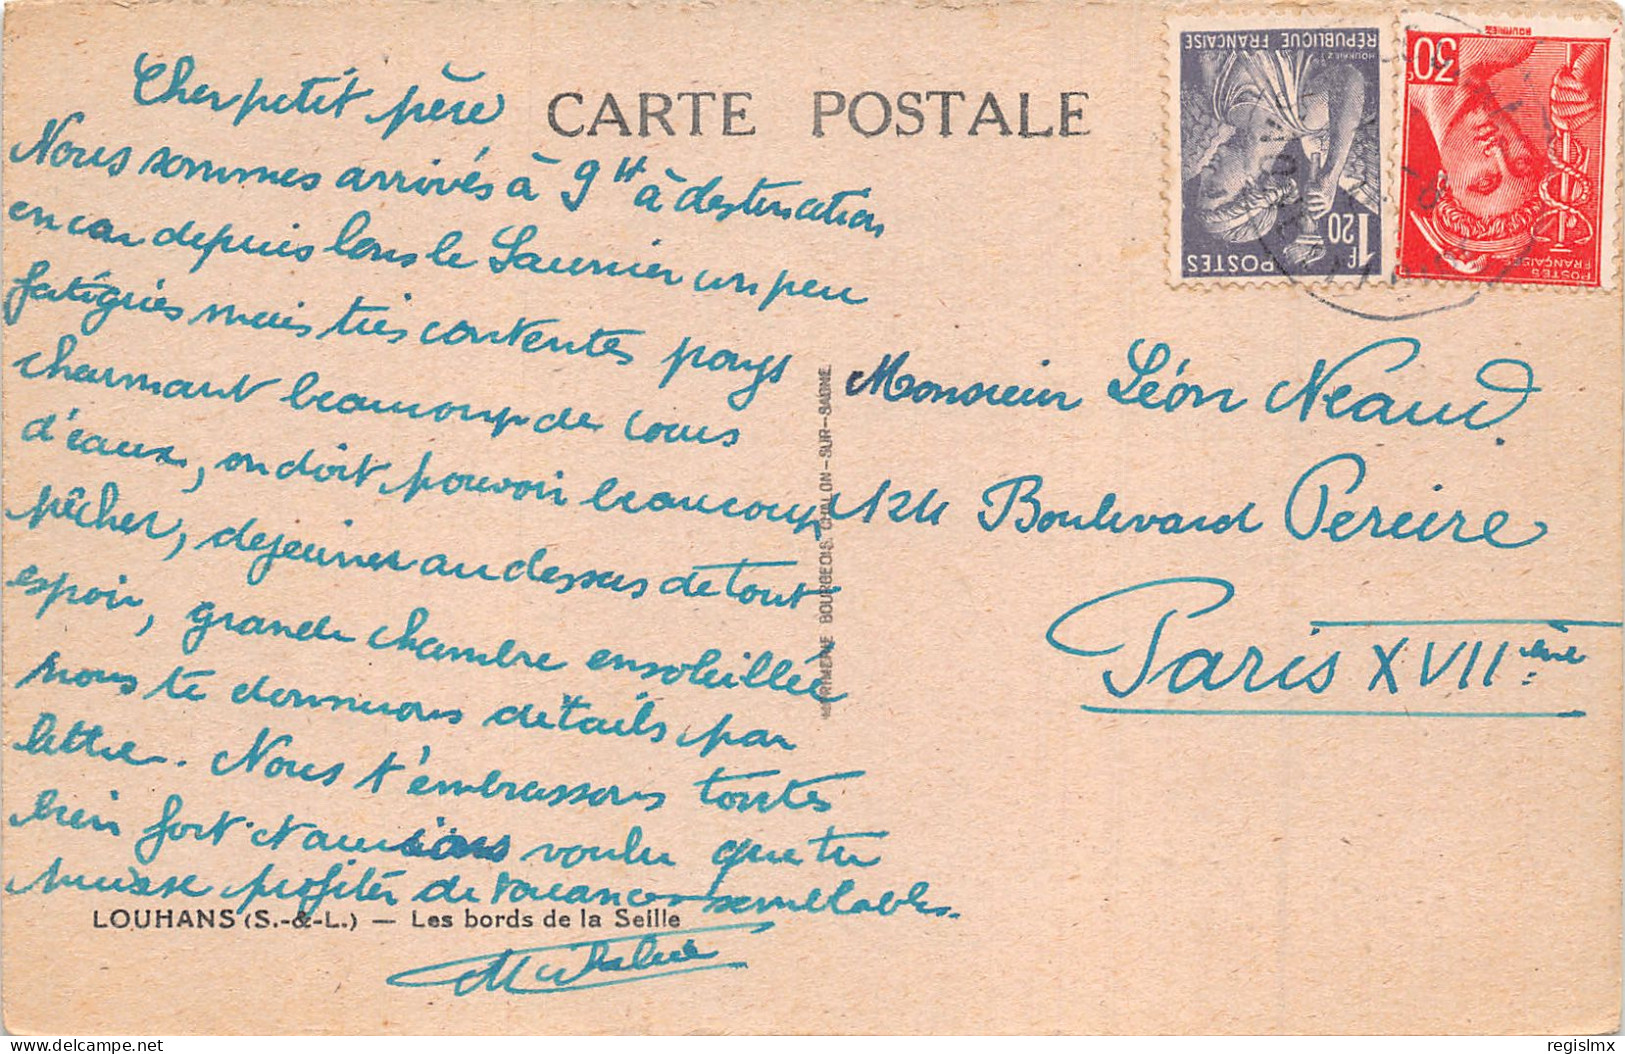 CARTE POSTALE
Cher petit père
Nous sommes arrivés à 9H à destination
en car depuis Lons le Saunier un peu
fatiguées mais très contentes pays
charmant beaucoup de cours
d'eaux, on doit pouvoir beaucoup
pêcher, dejeuner au dessus de tout
espoir, grande chambre ensoleillée
nous te donnerons détails par
lettre. Nous t'embrassons toutes
bien fort. N aurions voulu que tu
puisse profiter de vacances semblables.
LOUHANS (S.-&-L.) — Les bords de la Seille
IMPRIMERIE BOURGEOIS. CHALON-SUR-SAONE
Monsieur Léon Neaud.
124 Boulevard Pereire
Paris XVIIème
REPUBLIQUE FRANÇAISE
1F 20
POSTES
30c
POSTES
FRANÇAISES
delcampe.net
regislmx